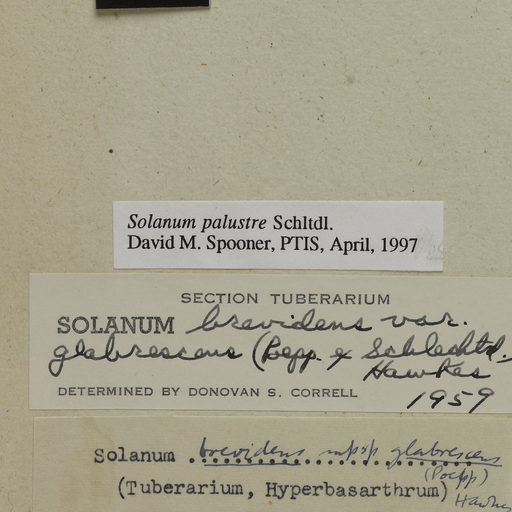 Solanum palustre Schltdl.
David M. Spooner, PTIS, April, 1997
SECTION TUBERARIUM
SOLANUM brevidens var.
glabrescens (Poepp. ex Schlechtd.)
Hawkes
DETERMINED BY DONOVAN S. CORRELL 1959
Solanum brevidens glabrescens
(Poepp)
(Tuberarium, Hyperbasarthrum) Hawkes